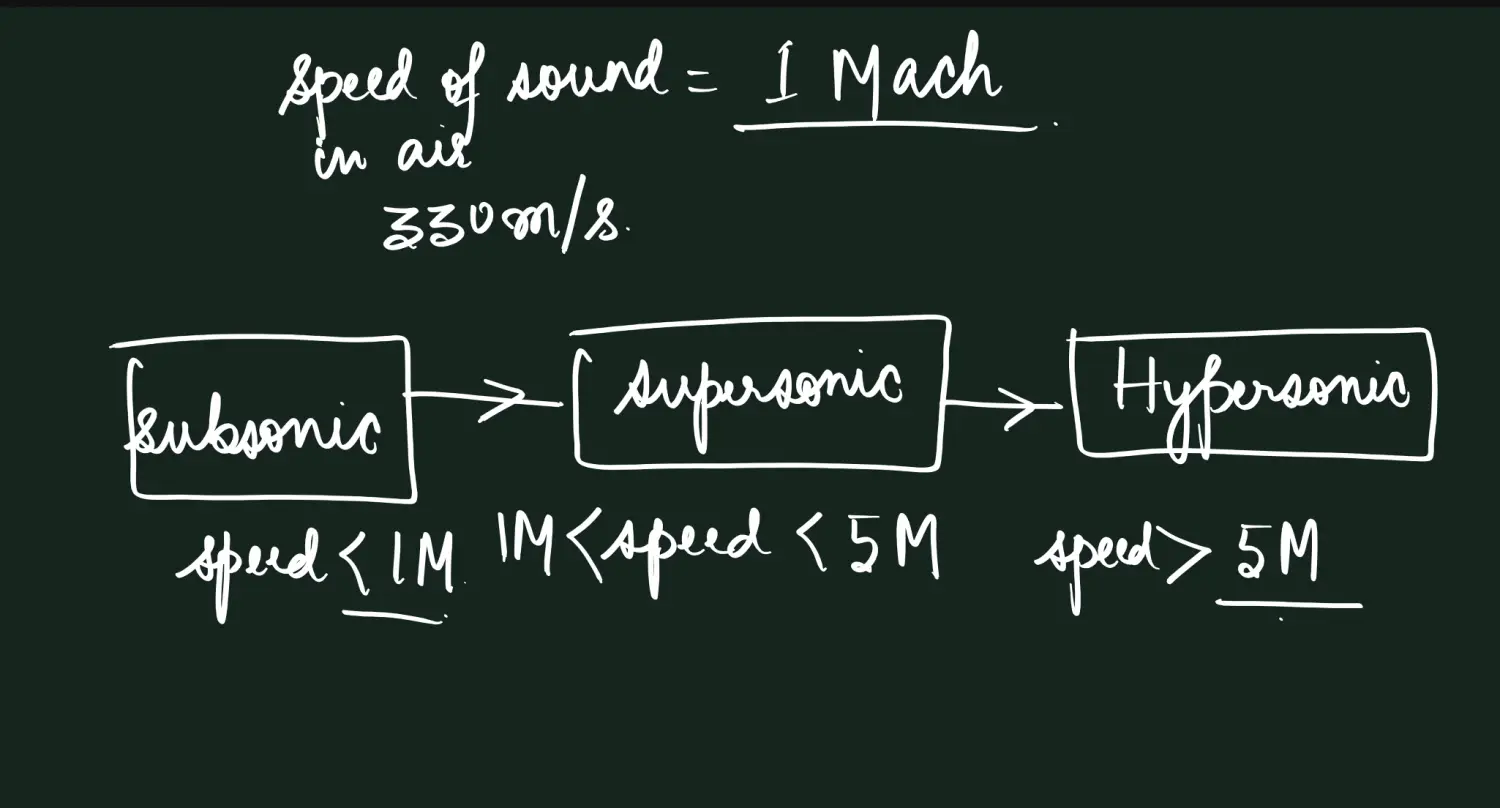 speed of sound = 1 Mach
in air
330m/s.
subsonic
supersonic
Hypersonic
speed < 1M
1M < speed < 5M
speed > 5M